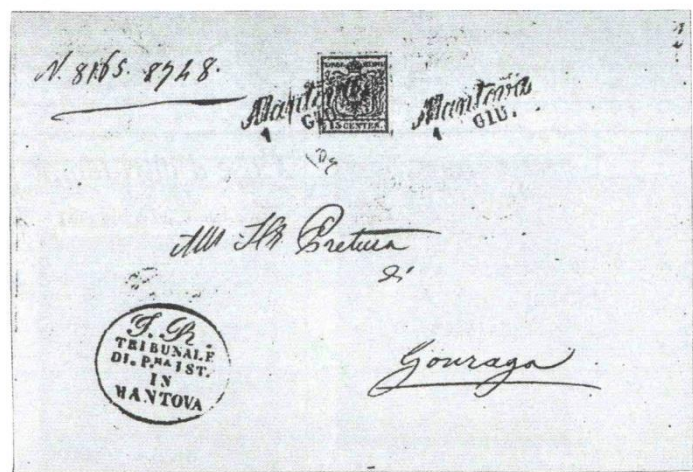 N. 8165. 8748.
Mantova
1 GIU.
15 CENTES.
Mantova
1 GIU.
All' I. R. Pretura
di
Gonzaga
I. R.
TRIBUNALE
DI. P.MA IST.
IN
MANTOVA